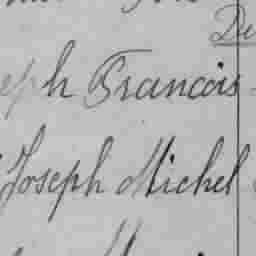 De
eph Francois
Joseph Michel